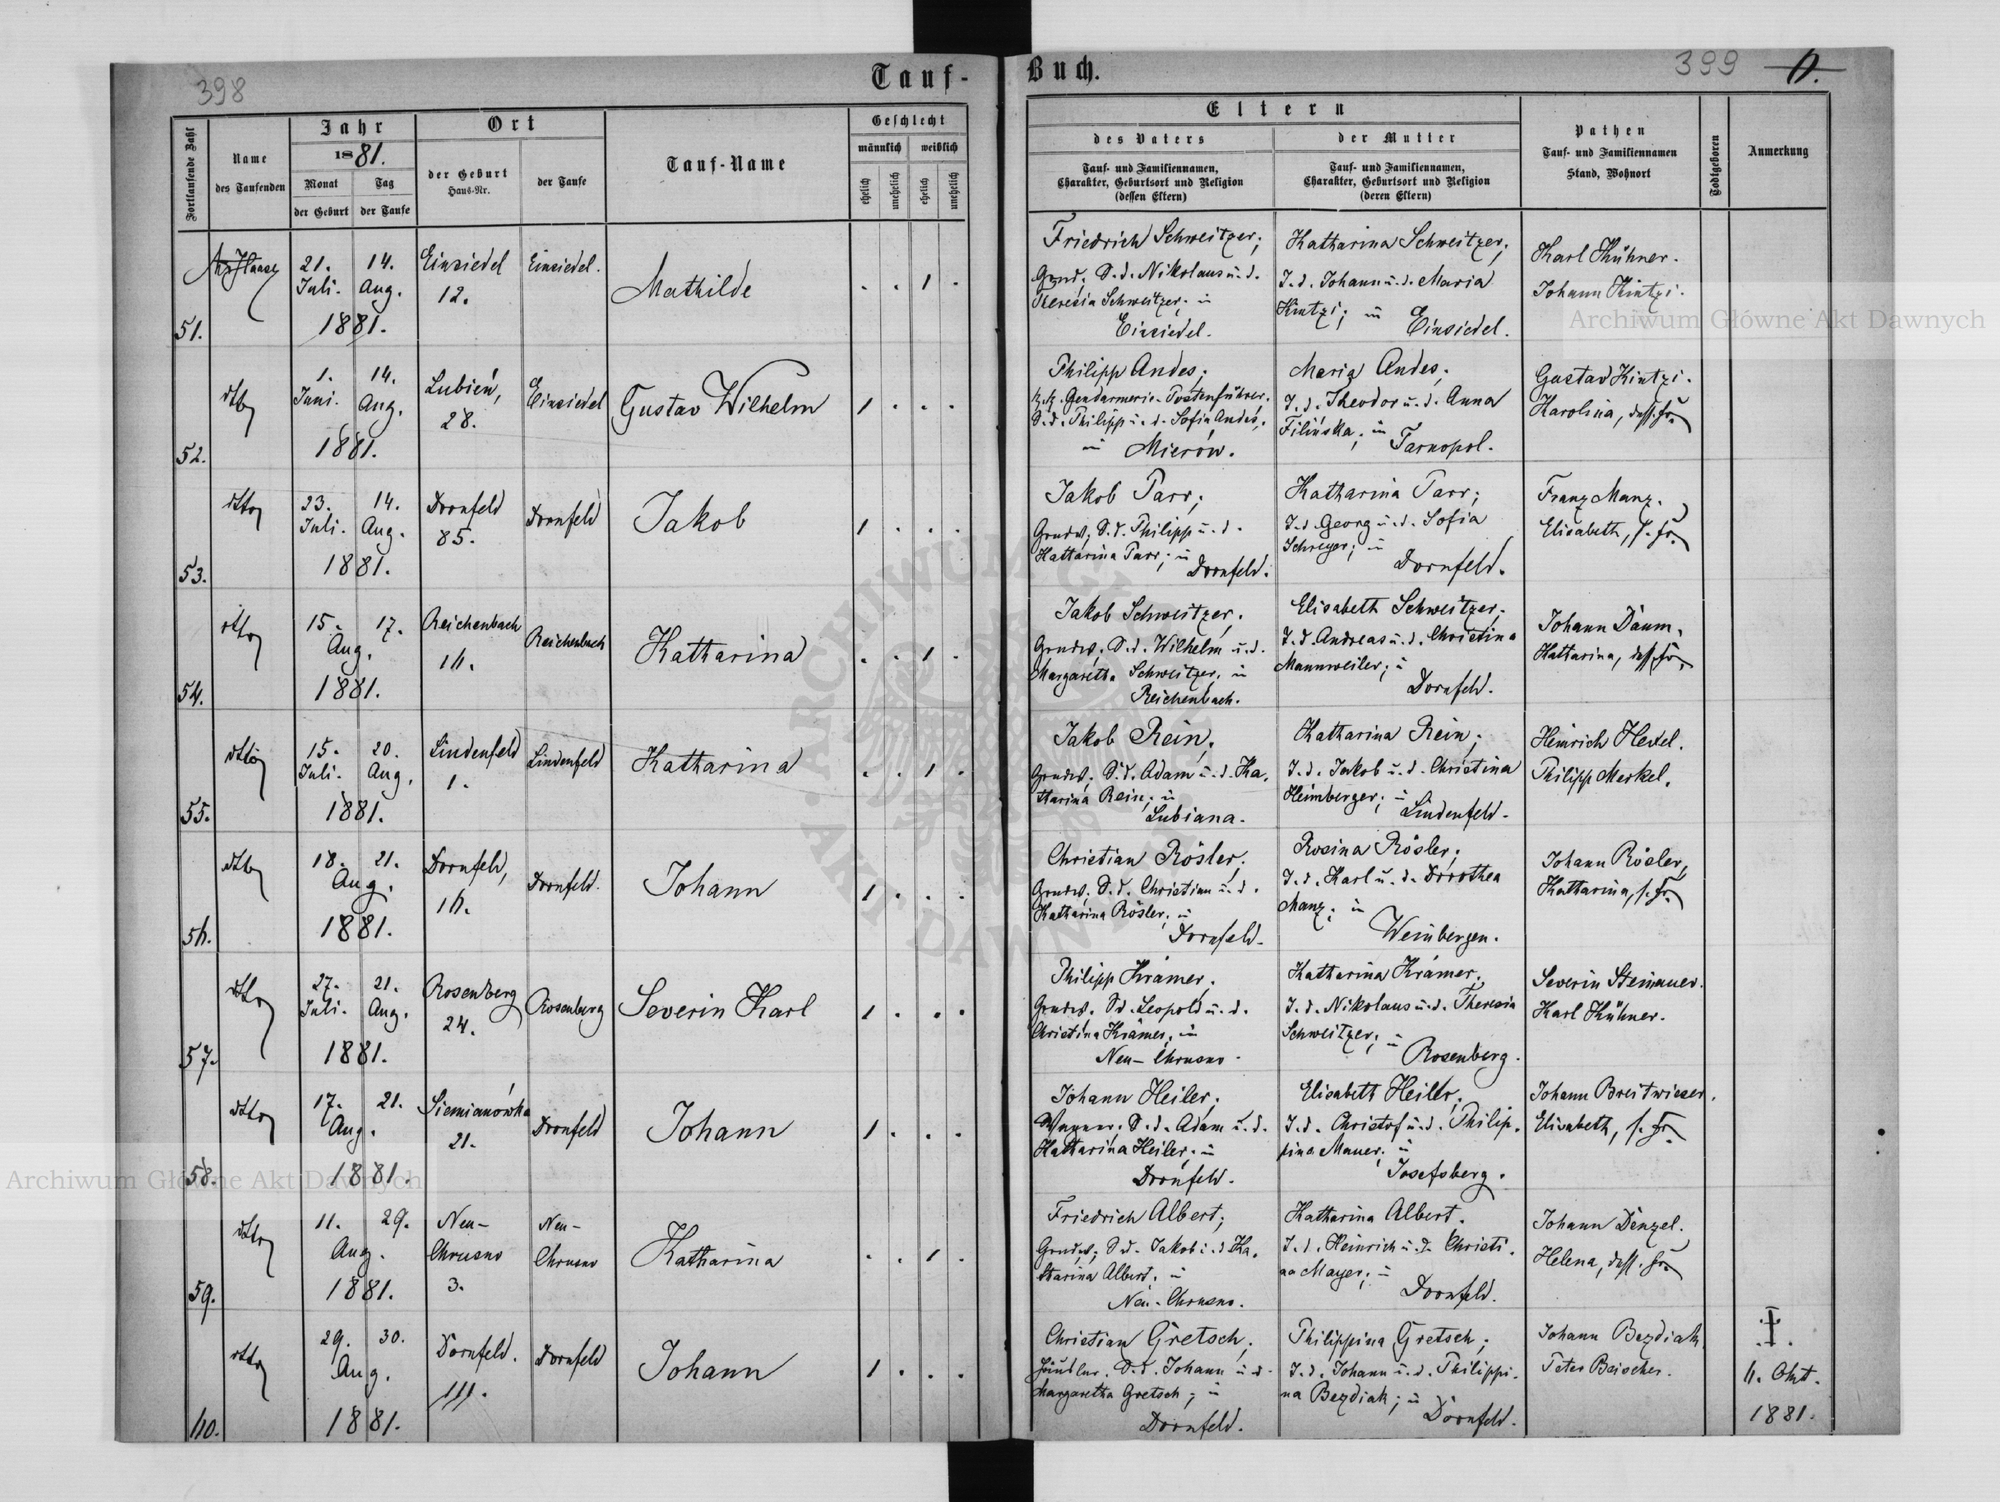 398
Tauf-
Buch.
399 6.
Fortlaufende Zahl
Name
des Taufenden
Jahr
1881.
Monat
Tag
der Geburt
der Taufe
Ort
der Geburt
Haus-Nr.
der Taufe
Tauf-Name
Geschlecht
männlich
weiblich
ehelich
unehelich
ehelich
unehelich
Eltern
des Vaters
Tauf- und Familiennamen,
Charakter, Geburtsort und Religion
(dessen Eltern)
der Mutter
Tauf- und Familiennamen,
Charakter, Geburtsort und Religion
(deren Eltern)
Pathen
Tauf- und Familiennamen
Stand, Wohnort
Todtgeboren
Anmerkung
51.
21. 14.
Juli. Aug.
1881.
Einsiedel
12.
Einsiedel.
Mathilde
. . 1 .
Friedrich Schweitzer;
Grndw. S.d. Nikolaus u. d.
Theresia Schweitzer; in
Einsiedel.
Katharina Schweitzer;
T. d. Johann u. d. Maria
Kintzi; in Einsiedel.
Karl Kühner.
Johann Kintzi.
52.
dtto
1. 14.
Juni. Aug.
1881.
Lubień,
28.
Einsiedel
Gustav Wilhelm
1 . . .
Philipp Andes;
k.k. Gendarmerie-Postenführer.
S.d. Philipp u. d. Sofia Andes;
in Mierów.
Maria Andes;
T. d. Theodor u. d. Anna
Filińska; in Tarnopol.
Gustav Kintzi.
Karolina, dess. Fr.
53.
dtto
23. 14.
Juli. Aug.
1881.
Dornfeld
85.
Dornfeld
Jakob
1 . . .
Jakob Parr;
Grndw. S.d. Philipp u. d.
Katharina Parr; in Dornfeld.
Katharina Parr;
T. d. Georg u. d. Sofia
Schreyer; in
Dornfeld.
Franz Manz.
Elisabeth, s. Fr.
54.
dtto
15. 17.
Aug.
1881.
Reichenbach
16.
Reichenbach
Katharina
. . 1 .
Jakob Schweitzer;
Grndw. S.d. Wilhelm u. d.
Margaretha Schweitzer; in
Reichenbach.
Elisabeth Schweitzer;
T. d. Andreas u. d. Christina
Mannweiler; in
Dornfeld.
Johann Daum.
Katharina, dess. Fr.
55.
dtto
15. 20.
Juli. Aug.
1881.
Lindenfeld
1.
Lindenfeld
Katharina
. . 1 .
Jakob Rein;
Grndw. S.d. Adam u. d. Ka-
tharina Rein; in
Lubiana.
Katharina Rein;
T. d. Jakob u. d. Christina
Heimberger; in
Lindenfeld.
Heinrich Hexel.
Philipp Merkel.
56.
dtto
18. 21.
Aug.
1881.
Dornfeld,
16.
Dornfeld.
Johann
1 . . .
Christian Rösler;
Grndw. S.d. Christian u. d.
Katharina Rösler; in
Dornfeld.
Rosina Rösler;
T. d. Karl u. d. Dorothea
Manz; in
Weinbergen.
Johann Rösler,
Katharina, s. Fr.
57.
dtto
27. 21.
Juli. Aug.
1881.
Rosenberg
24.
Rosenberg
Severin Karl
1 . . .
Philipp Krämer;
Grndw. S.d. Leopold u. d.
Christina Krämer; in
Neu-Chrusno.
Katharina Krämer;
T. d. Nikolaus u. d. Theresia
Schweitzer; in
Rosenberg.
Severin Steinauer.
Karl Kühner.
58.
dtto
17. 21.
Aug.
1881.
Siemianówka
21.
Dornfeld
Johann
1 . . .
Johann Heiler;
Wagner. S.d. Adam u. d.
Katharina Heiler; in
Dornfeld.
Elisabeth Heiler;
T. d. Christof u. d. Philip-
pina Mauer; in
Josefsberg.
Johann Breitwieser.
Elisabeth, s. Fr.
59.
dtto
11. 29.
Aug.
1881.
Neu-
Chrusno
3.
Neu-
Chrusno
Katharina
. . 1 .
Friedrich Albert;
Grndw; S.d. Jakob u. d. Ka-
tharina Albert; in
Neu-Chrusno.
Katharina Albert.
T. d. Heinrich u. d. Christi-
na Mayer; in
Dornfeld.
Johann Denzel.
Helena, dess. Fr.
60.
dtto
29. 30.
Aug.
1881.
Dornfeld.
111.
Dornfeld
Johann
1 . . .
Christian Gretsch;
Häusler. S.d. Johann u. d.
Margaretha Gretsch; in
Dornfeld.
Philippina Gretsch;
T. d. Johann u. d. Philippi-
na Bezdiak; in
Dornfeld.
Johann Bezdiak.
Peter Beischer.
6. Okt.
1881.
Archiwum Główne Akt Dawnych
Archiwum Główne Akt Dawnych